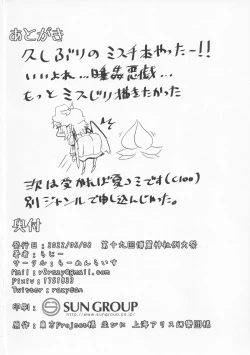 あとがき
久しぶりのミス千本やったー!!
いいよね…睡姦悪戯…
もっとミスじり描きたかった
次は受かれば夏コミです(C100)
別ジャンルで申し込んじゃった。
奥付
発行日:2022/05/08 第十九回博麗神社例大祭
著者:らじー
サークル:らーめんらいす
Pixiv:
Twitter:
印刷:
SUN GROUP
http://www.sungroup.co.jp/
原作:東方Project様 並びに 上海アリス幻樂団様